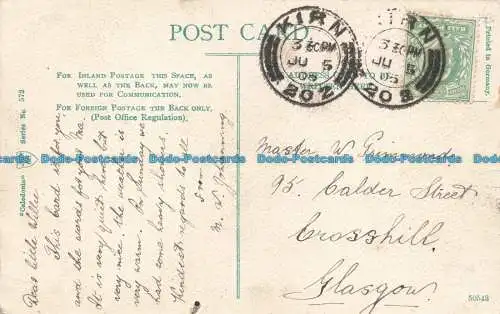 POST CARD
FOR INLAND POSTAGE THIS SPACE, AS
WELL AS THE BACK, MAY NOW BE
USED FOR COMMUNICATION.
FOR FOREIGN POSTAGE THE BACK ONLY.
(Post Office Regulation).
"Caledonia" Series No. 572
KIRN
3 30PM
JU 5
05
202
KIRN
3 30PM
JU 5
05
Printed in Germany.
Dear little Willie
This card is for you
and the words for your Ma
It is very quiet here but
very nice the weather is
very warm. On Sunday we
had some heavy showers.
Kindest regards to all
from
Master W
95 Calder Street
Crosshill
Glasgow
50543
www.bidStart.com